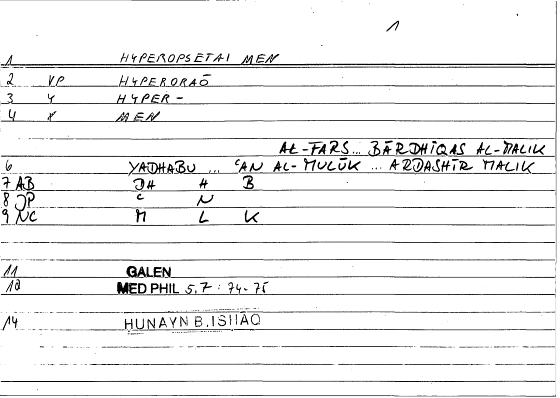 1
1 HYPEROPSETAI MEN
2 VP HYPERORAŌ
3 Y HYPER-
4 X MEN
AL-FARS... BĀRDHĪQAS AL-MALIK
6 YADHABU ... ʿAN AL-MULŪK ... ARDASHĪR MALIK
7 AB DH H B
8 JP ʿ N
9 NC M L K
11 GALEN
12 MED PHIL 5,7 : 74-75
14 HUNAYN B. ISHAQ